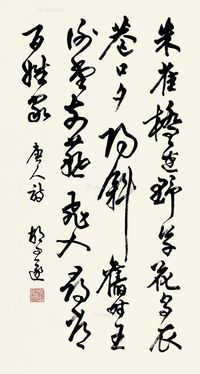 朱雀橋邊野草花烏衣
巷口夕陽斜舊時王
謝堂前燕飛入尋常
百姓家
唐人詩 胡问遂